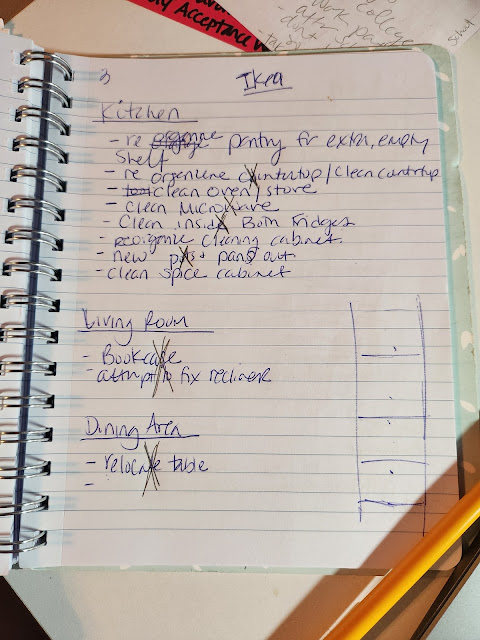 y Acceptance
college
3
Ikea
Kitchen
- re orgenine pantry for extra, empty
Shelf
- re orgenine countertop/clean countrtop
- clean oven/stove
- clean Microwave
- Clean inside Both Fridges
- reorigenze cleaning cabinet.
- new pots + pans out
- clean spice cabinet
Living Room
- Bookcase
- attmpt to fix recliners
Dining Area
- relocate table
-